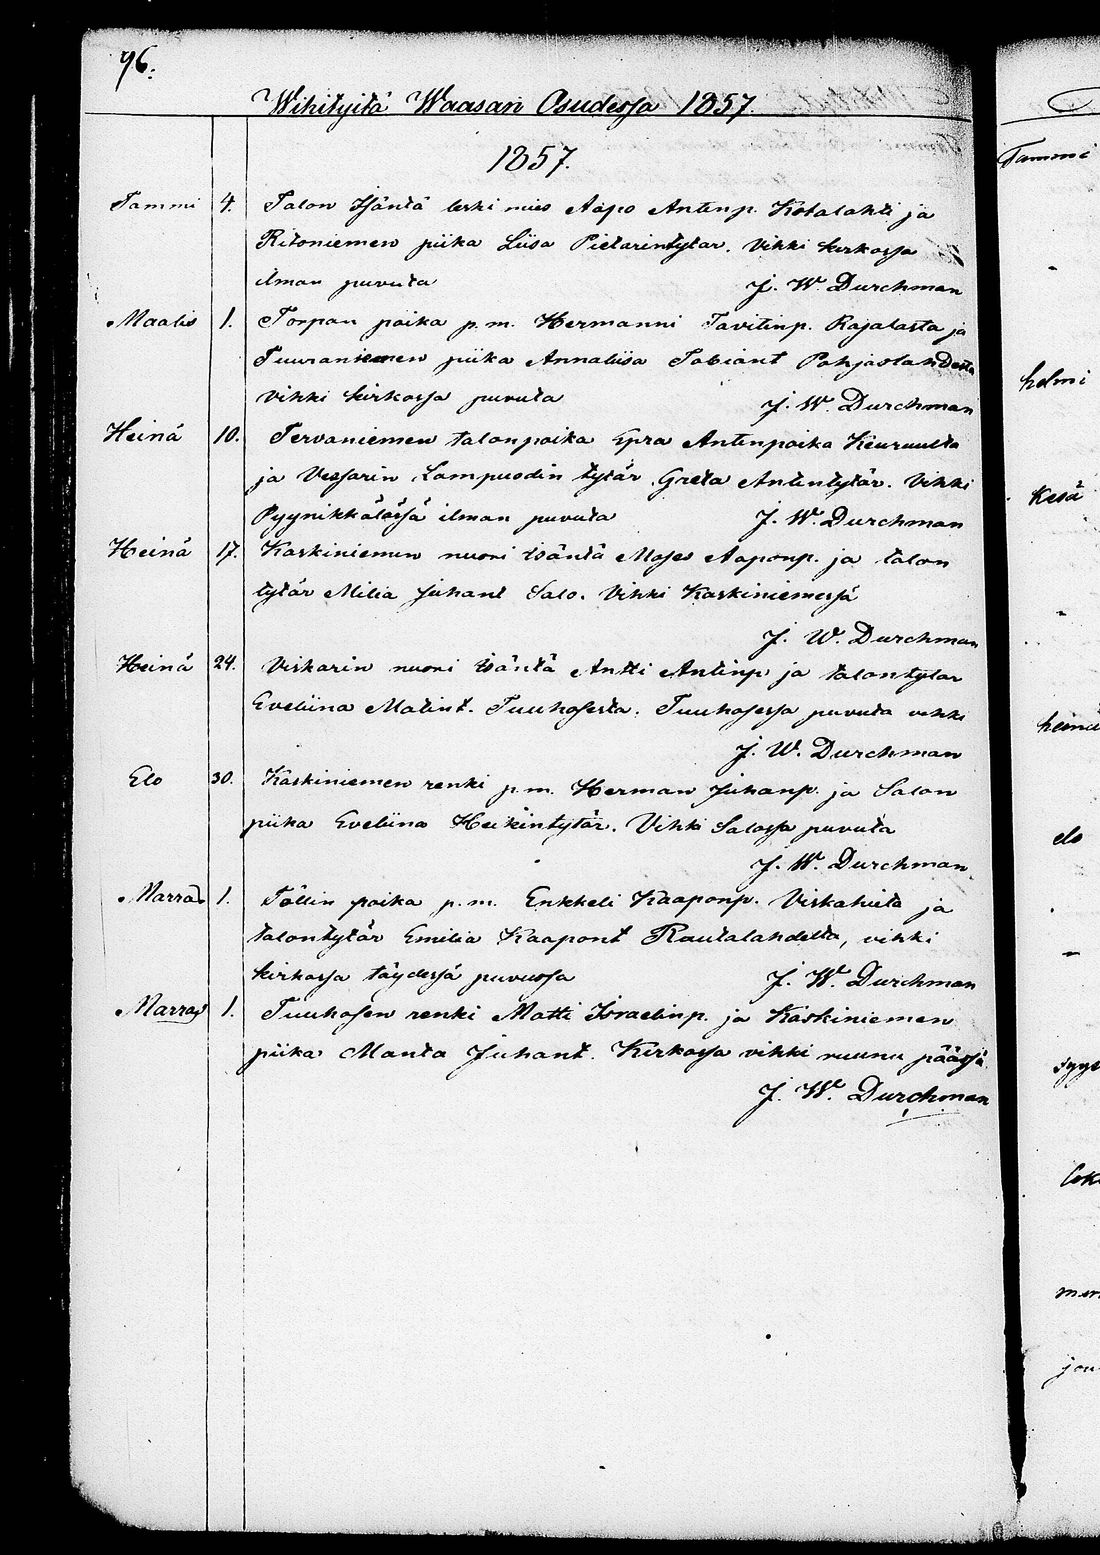 96.
Wihityitä Waasan Osudessa 1857.
1857.
Tammi 4. Talon Isäntä leski mies Aapo Antinp. Kotalahti ja
Ritoniemen piika Liisa Pietarintytär. Vihki kirkossa
ilman puvuta J. W. Durchman
Maalis 1. Torpan poika p.m. Hermanni Tavitinp. Rajalasta ja
Tuuraniemen piika Annaliisa Tobiant Pohjaslahdesta
vihki kirkossa puvuta J. W. Durchman
Heinä 10. Tervaniemen talonpoika Epra Antinpoika Keuruulta
ja Vessarin Lampuodin tytär Greta Antintytär. Vihki
Pyynikkälässä ilman puvuta J. W. Durchman
Heinä 17. Kaskiniemen nuori isäntä Moses Aaponp. ja talon
tytär Milia Juhant Salo. Vihki Kaskiniemessä
J. W. Durchman
Heinä 24. Viskarin nuori isäntä Antti Antinp ja talontytär
Eveliina Matint. Tuuhosesta. Tuuhosessa puvuta vihki
J. W. Durchman
Elo 30. Kaskiniemen renki p.m. Herman Juhanp. ja Salon
piika Eveliina Heikintytär. Vihki Salossa puvuta
J. W. Durchman
Marras 1. Töllin poika p.m. Enkkeli Kaaponp. ja
talontytär Emilia Kaapont Rautalahdelta, vihki
kirkossa täydessä puvussa J. W. Durchman
Marras 1. Tuuhosen renki Matti Israelinp. ja Kaskiniemen
piika Manta Juhant. Kirkossa vihki ruunu päässä
J. W. Durchman
Tammi
helmi
Kesä
heinä
elo
syys